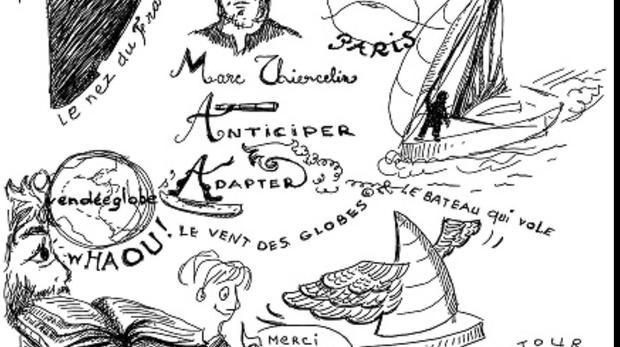 Le nez du
PARIS
Marc Thiercelin
ANTICIPER
S'ADAPTER
vendéeglobe
WHAOU!
LE VENT DES GLOBES
LE BATEAU qui VOLE
MERCI
TOUR